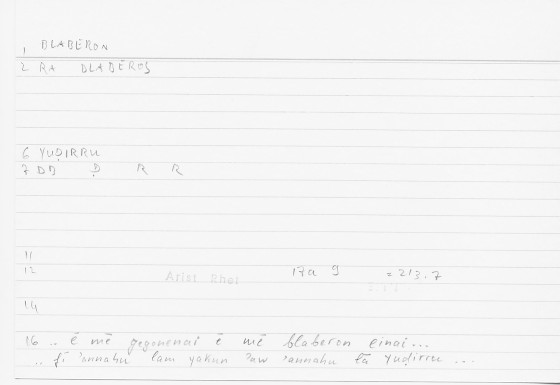 1 BLABĒRON
2 RA BLABĒROS
6 YUḌIRRU
7 DD Ḍ R R
11
12 Arist Rhet 17a 9 = 213.7
14
16 .. ē mē gegonenai ē mē blaberon einai...
.. fī ʾannahu lam yakun ʾaw ʾannahu yuḍirru ...